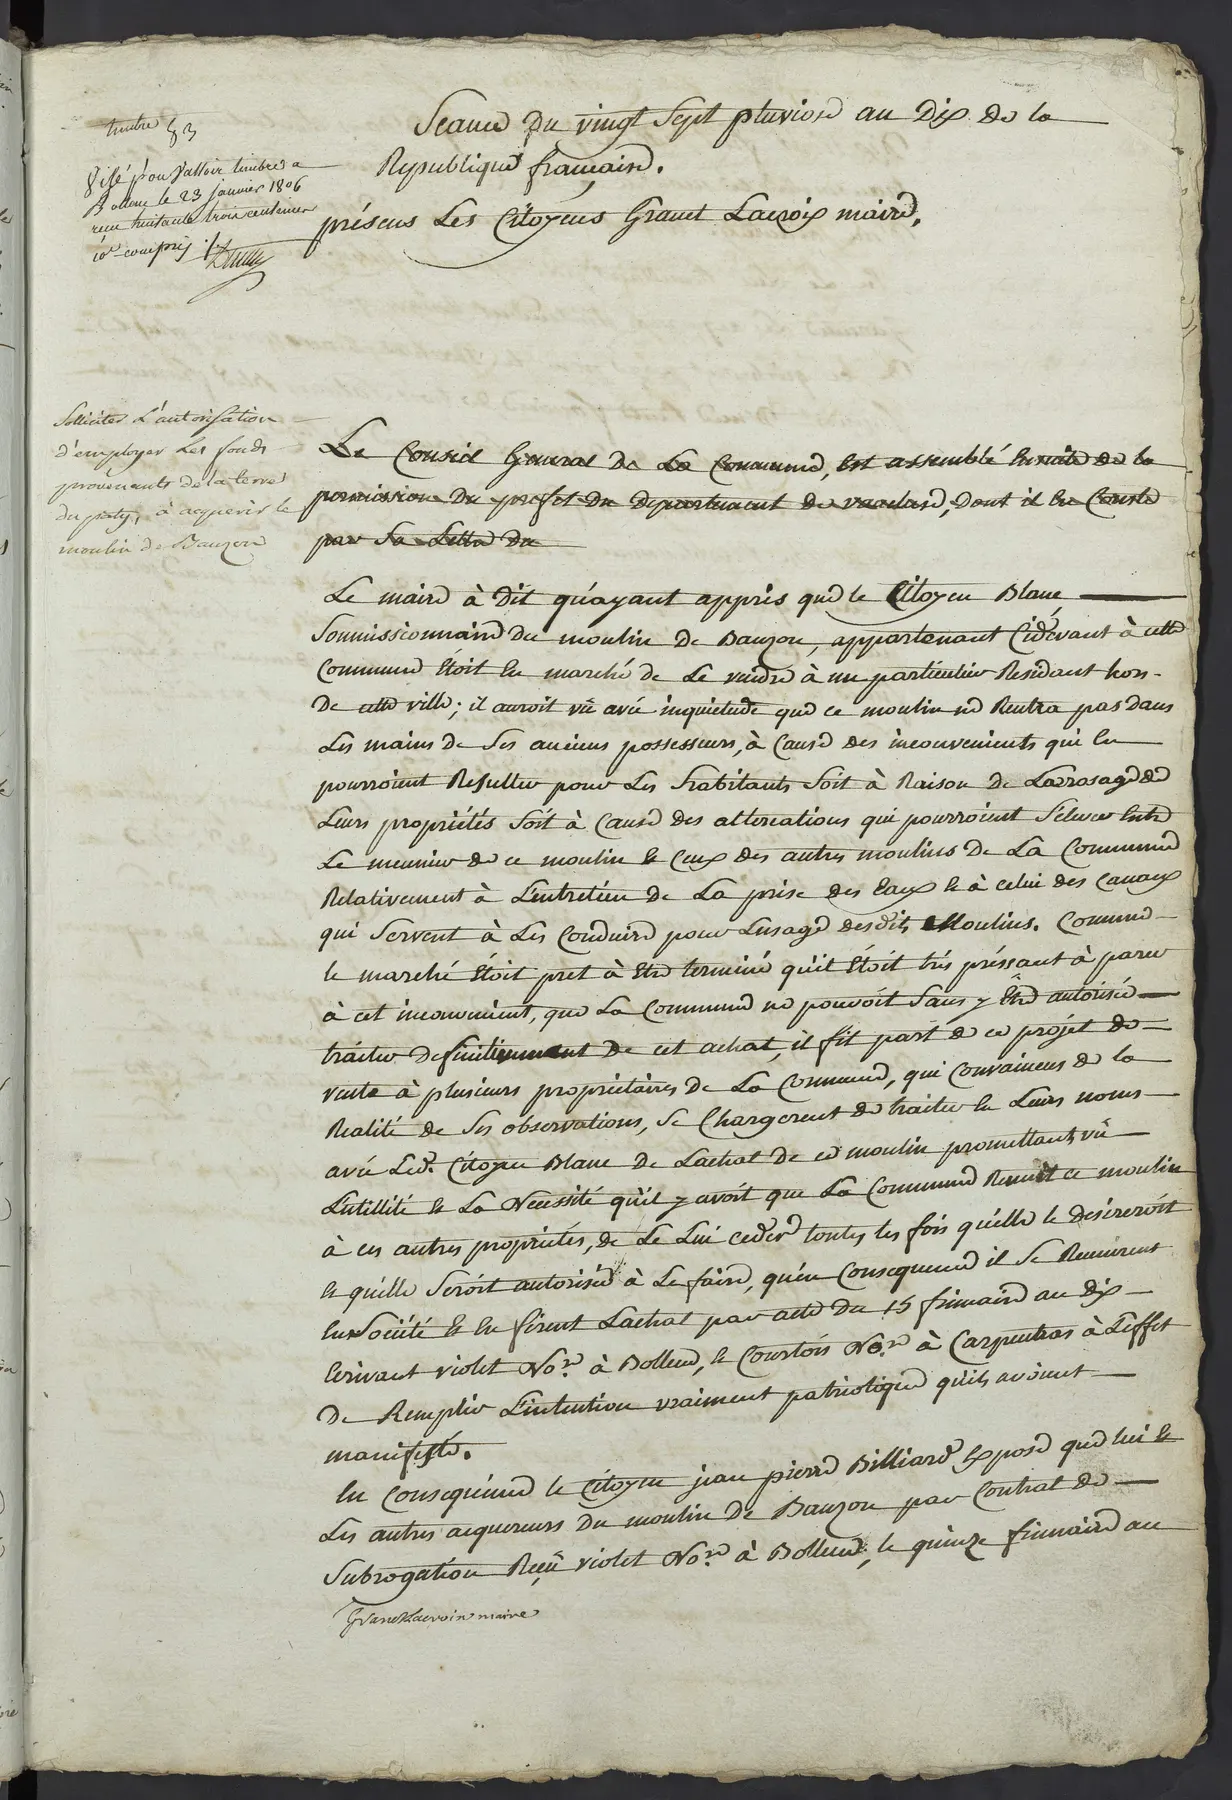 timbre 83
Visé pour valloir timbre a
Bollene le 23 janvier 1806
reçu huitante trois centimes
10e compris ./.
Seance du vingt Sept pluviose an Dix de la
Republique française.
présens Les Citoyens Granet Lacroix maire.
Solliciter L'autorisation
d'employer Les fonds
provenants de la terre
du paty, à acquerir le
moulin de Bauzon
Le Conseil General de La Commune, Est assemblé Ensuite de la
permission Du prefet du departement de vaucluse, Dont il En Conste
par Sa Lettre du
Le maire à dit qu'ayant appris que le Citoyen Blanc
Soumissionnaire du moulin de Bauzon, appartenant Cidevant à cette
Commune Etoit En marché de Le vendre à un particulier Residant hors
De cette ville; il auroit vû avec inquietude que ce moulin ne Rentra pas dans
Les mains de Ses anciens possesseurs, à Cause des inconvenients qui En
pourroient Resulter pour Les habitants Soit à Raison de Larrosage de
Leurs propriétés Soit à Cause des altercations qui pourroient S'elever Entre
Le meunier de ce moulin & Ceux des autres moulins de La Commune
Relativement à L'entretien de La prise des Eaux & à celui des Canaux
qui Servent à Les Conduire pour Lusage desdits Moulins. Comme
le marché Etoit pret à Etre terminé qu'il Etoit très préssant à parer
à cet inconvenient, que La Commune ne pouvoit Sans y Être autorisée
traiter definitivement de cet achat, il fit part de ce projet de
vente à plusieurs proprietaires de La Commune, qui Convaincus de la
Realité de Ses observations, Se Chargerent de traiter En Leurs noms
avec Led. Citoyen Blanc de Lachat de ce moulin promettant, vû
L'utillité & La Necessité qu'il y avoit que La Commune Reunit ce moulin
à ces autres propriétés, de Le Lui ceder toutes les fois qu'elle le desireroit
& qu'elle Seroit autorisée à Le faire, qu'en Consequence il Se Reunirent
En Société & En firent Lachat par acte du 15 frimaire an dix
Ecrivant violet No.re à Bollene, & Courtois No.re à Carpentras à L'effet
De Remplir L'intention vraiment patriotique qu'ils avoient
manifesté.
En Consequence le Citoyen jean pierre Billiard Expose que lui &
Les autres acquereurs du moulin de Bauzon par Contrat de
Subrogation Reçû violet No.re à Bollene, le quinze frimaire an
Granet Lacroix maire